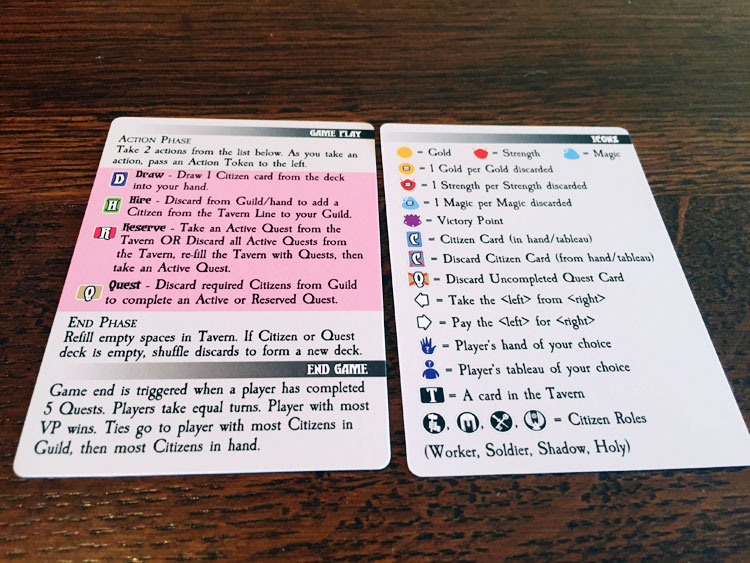 GAME PLAY
ACTION PHASE
Take 2 actions from the list below. As you take an
action, pass an Action Token to the left.
D Draw - Draw 1 Citizen card from the deck
into your hand.
H Hire - Discard from Guild/hand to add a
Citizen from the Tavern Line to your Guild.
R Reserve - Take an Active Quest from the
Tavern OR Discard all Active Quests from
the Tavern, re-fill the Tavern with Quests, then
take an Active Quest.
Q Quest - Discard required Citizens from Guild
to complete an Active or Reserved Quest.
END PHASE
Refill empty spaces in Tavern. If Citizen or Quest
deck is empty, shuffle discards to form a new deck.
END GAME
Game end is triggered when a player has completed
5 Quests. Players take equal turns. Player with most
VP wins. Ties go to player with most Citizens in
Guild, then most Citizens in hand.
ICONS
= Gold = Strength = Magic
= 1 Gold per Gold discarded
= 1 Strength per Strength discarded
= 1 Magic per Magic discarded
= Victory Point
C = Citizen Card (in hand/tableau)
C = Discard Citizen Card (from hand/tableau)
Q = Discard Uncompleted Quest Card
= Take the <left> from <right>
= Pay the <left> for <right>
= Player's hand of your choice
= Player's tableau of your choice
T = A card in the Tavern
, , , = Citizen Roles
(Worker, Soldier, Shadow, Holy)